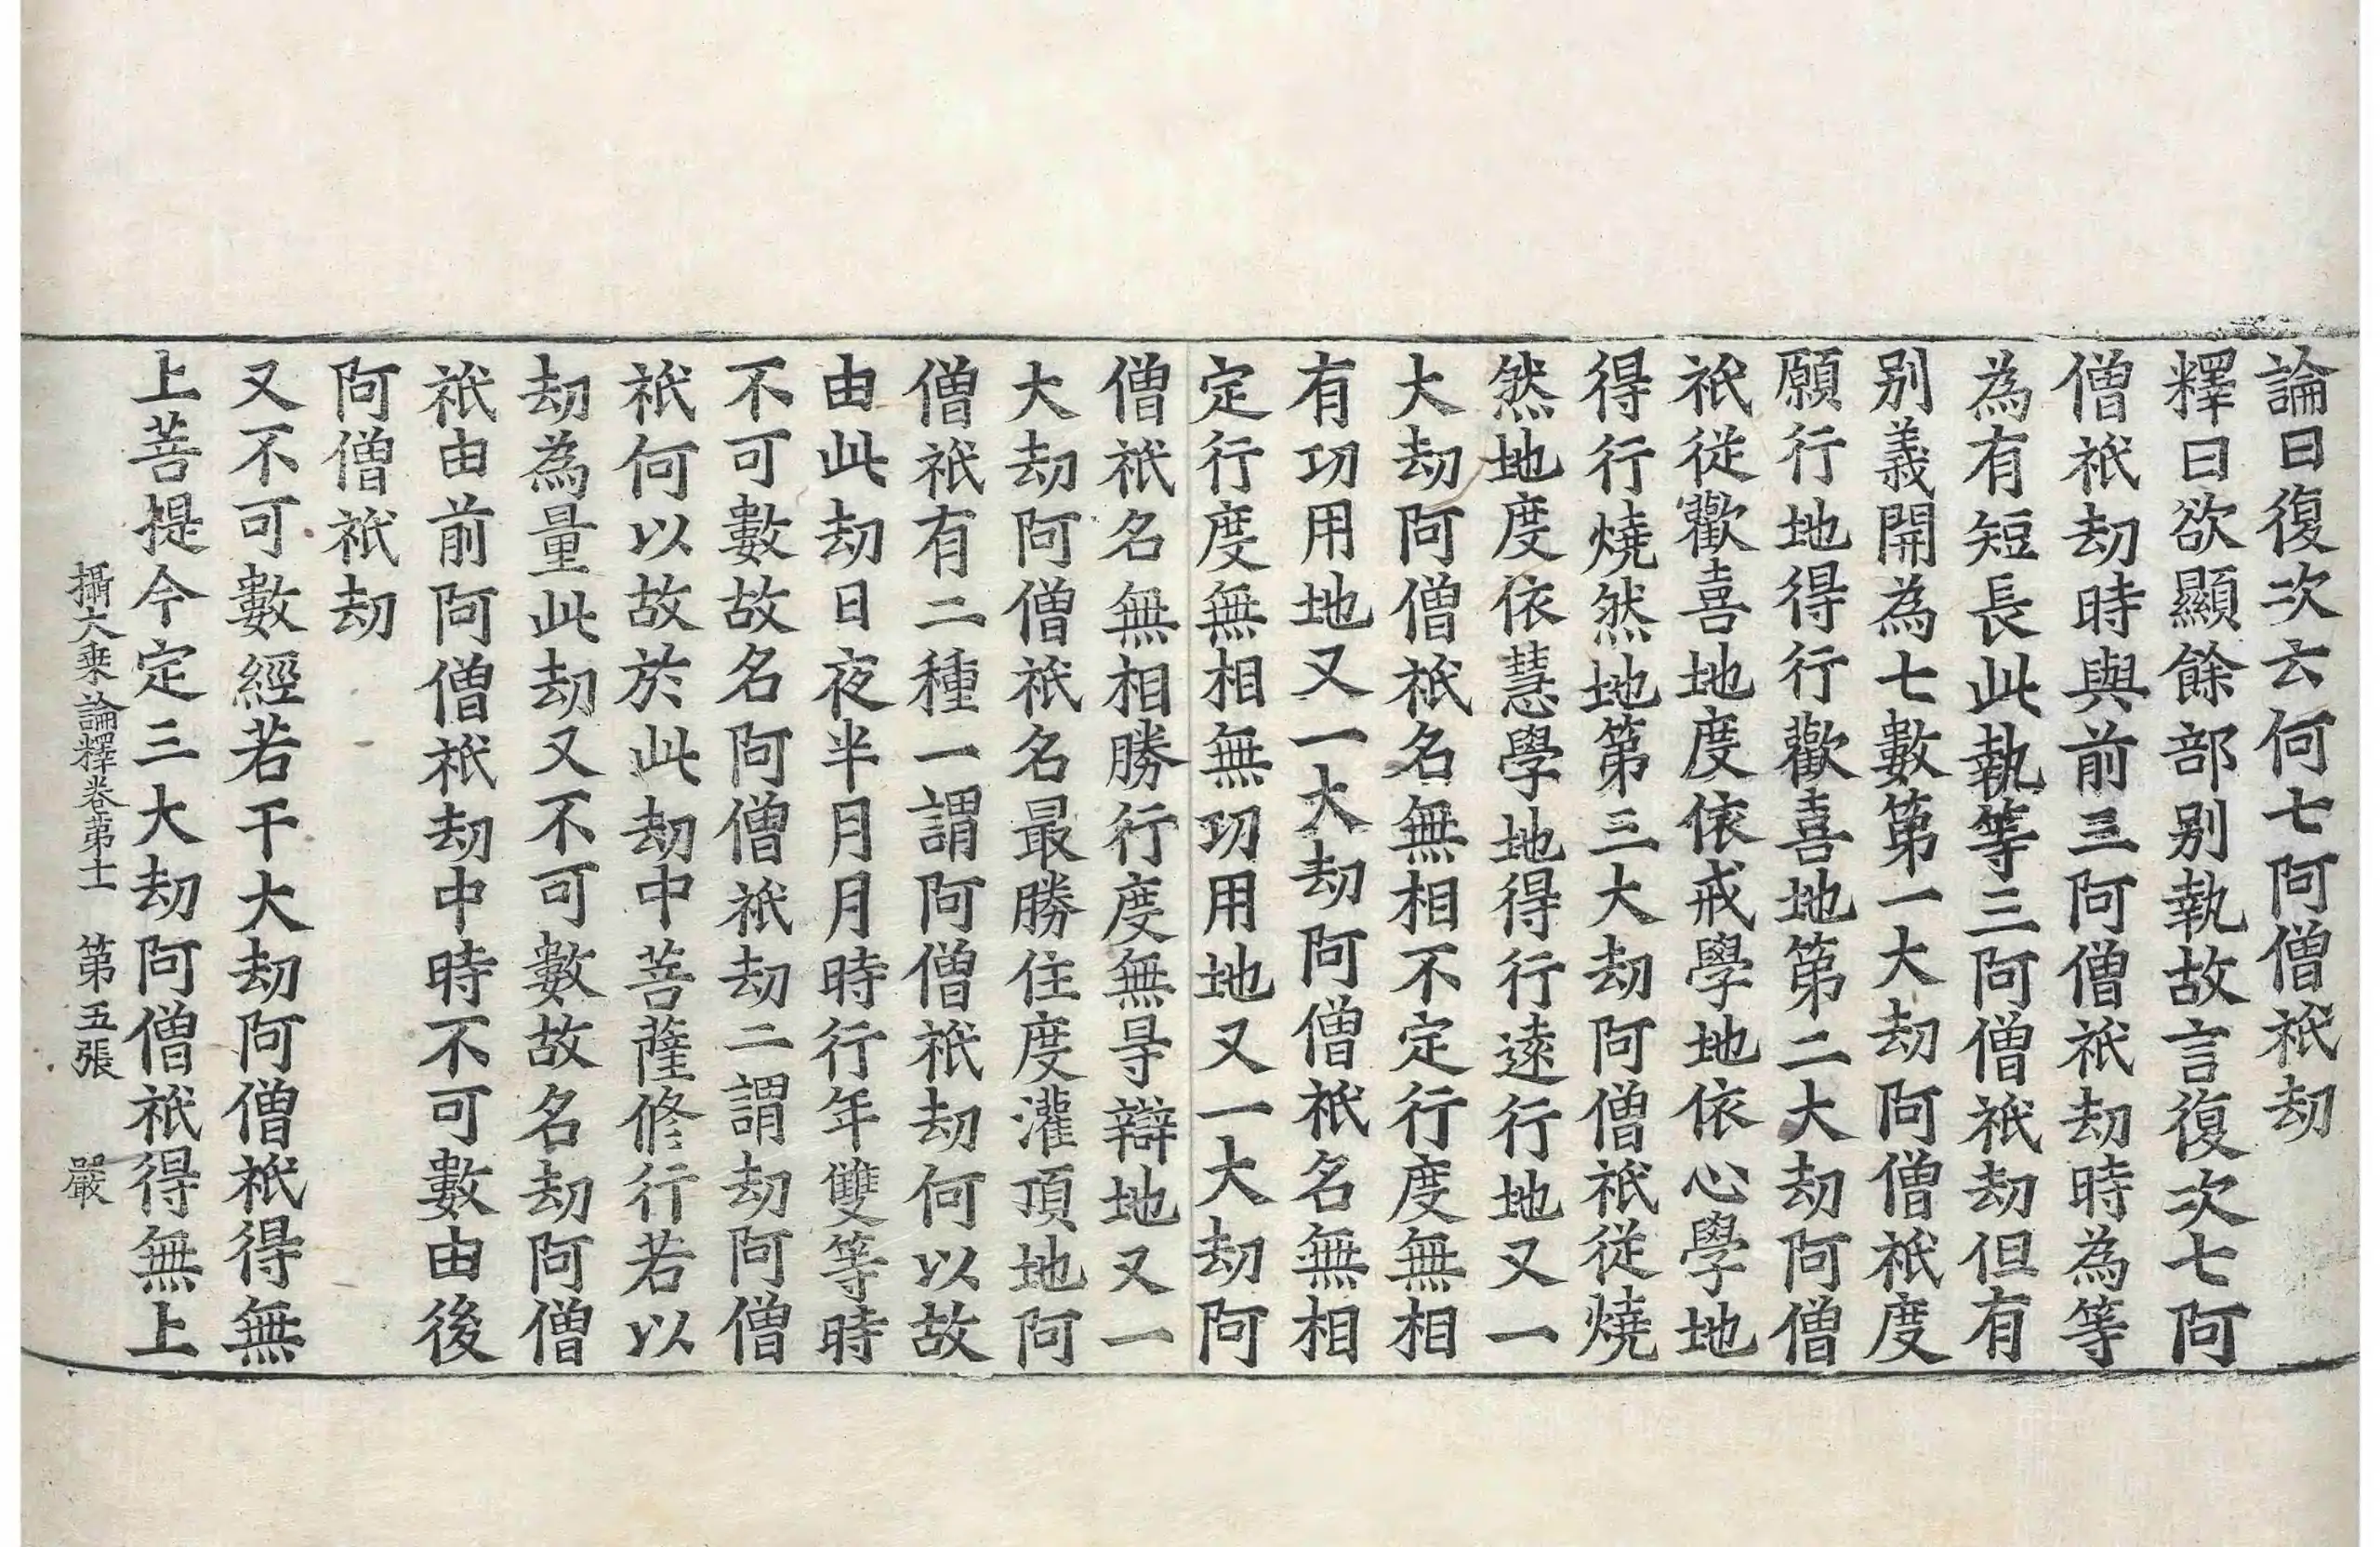 論曰復次云何七阿僧祇劫
釋曰欲顯餘部别執故言復次七阿
僧祇劫時與前三阿僧祇劫時為等
為有短長此執等三阿僧祇劫但有
别義開為七數第一大劫阿僧祇度
願行地得行歡喜地第二大劫阿僧
祇從歡喜地度依戒學地依心學地
得行燒然地第三大劫阿僧祇從燒
然地度依慧學地得行遠行地又一
大劫阿僧祇名無相不定行度無相
有功用地又一大劫阿僧祇名無相
定行度無相無功用地又一大劫阿
僧祇名無相勝行度無㝵辯地又一
大劫阿僧祇名最勝住度灌頂地阿
僧祇有二種一謂阿僧祇劫何以故
由此劫日夜半月月時行年雙等時
不可數故名阿僧祇劫二謂劫阿僧
祇何以故於此劫中菩薩修行若以
劫為量此劫又不可數故名劫阿僧
祇由前阿僧祇劫中時不可數由後
阿僧祇劫
又不可數經若干大劫阿僧祇得無
上菩提今定三大劫阿僧祇得無上
攝大乗論釋卷第十一 第五張 嚴